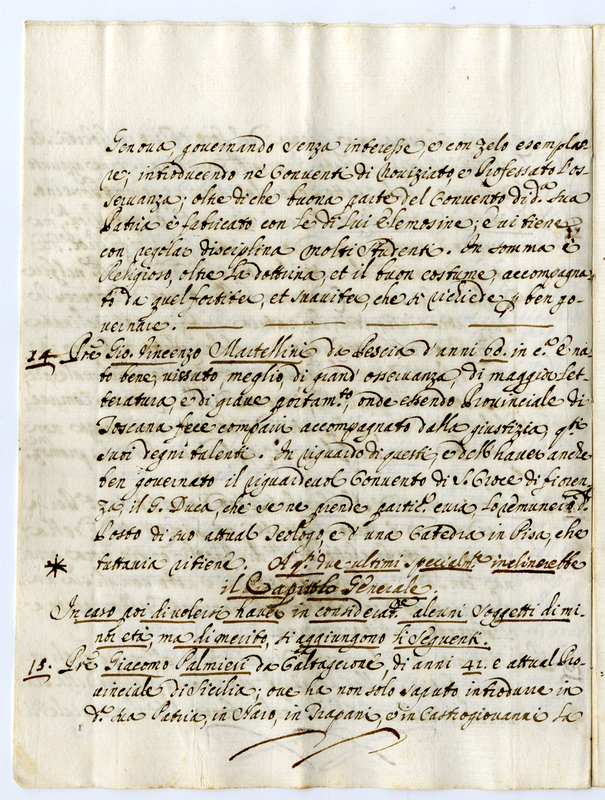 Genova, governando senza interesse e con zelo esempla-
re; introducendo ne' Conventi di Noviziato, e Professato l'os-
servanza; oltre di che buona parte del Convento di d.ª sua
Patria è fabricato con le di Lui Elemosine; e vi tiene
con regolar disciplina molti studenti. In somma è
Religioso, oltre la dottrina, et il buon costume, accompagna-
to da quel fortiter, et suaviter, che si richiede p ben go-
vernare.
14. Pre Gio. Vincenzo Martellini da Pescia d'anni 60. in c.ª È na-
to bene, vissuto meglio, di grand' osservanza, di maggior let-
teratura, e di grave portam.to, onde essendo Provinciale di
Toscana fece comparir accompagnato dalla giustizia, q.ti
suoi degni talenti. In riguardo di questi, e dell'haver anche
ben governato il riguardevol Convento di S. Croce di fioren-
za, il G. Duca, che se ne prende partic.r cura, lo remunerò d.l
Posto di suo attual Teologo, e d'una Catedra in Pisa, che
* tuttavia ritiene. A q.ti due ultimi specialm.te inclinerebbe
il Capitolo Generale.
In caso poi di volersi haver in considerat.ne alcuni soggetti di mi-
nor età, ma di merito, si aggiungono li seguenti.
15. Pre Giacomo Palmieri da Caltagerone, di anni 42. e attual Pro-
vinciale di Sicilia; ove ha non solo saputo introdurre in
d.ª sua Patria, in Naro, in Trapani, e in Castrogiovanni la